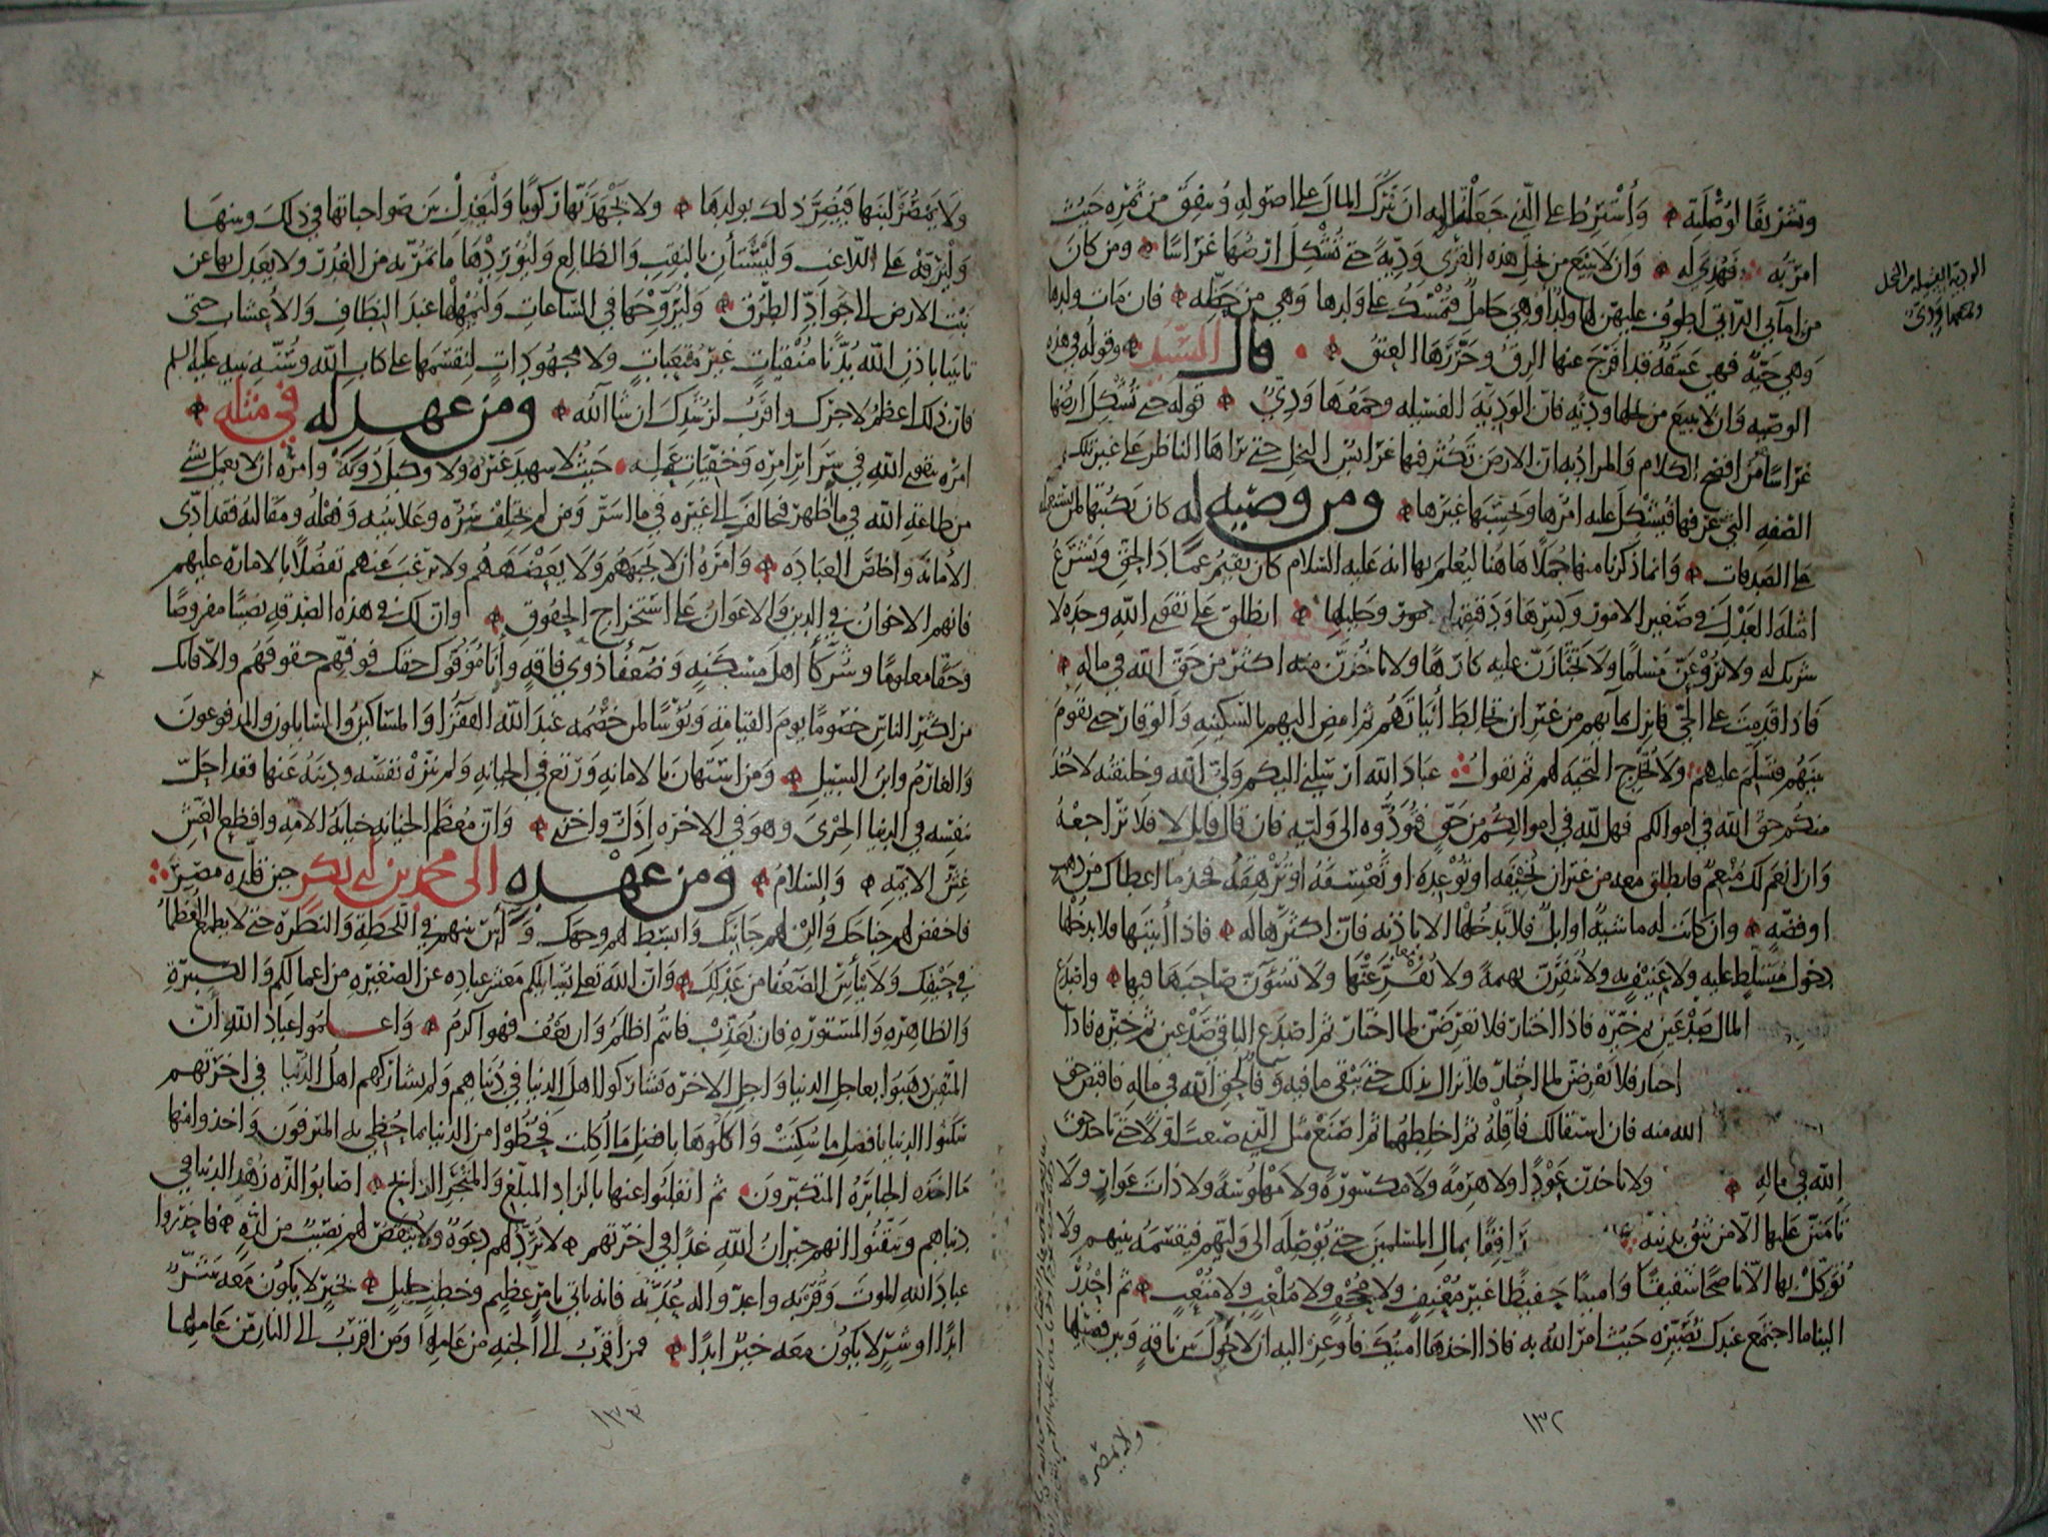 وتشريفا لوصلته وأشترط على الذي جعلته اليه ان يترك المال على اصوله وينفق من ثمره حيث
امر به وهدي له وان لا يبيع من نخل هذه القرى ودية حتى تشكل ارضها غراسا ومن كان
من امآئي اللاتي اطوف عليهن لها ولد او هي حامل فتمسك على ولدها وهي من حظه فان مات ولدها
وهي حية فهي عتيقة قد افرج عنها الرق وحررها العتق قال السيد وقوله في هذه
الوصيه وان لا يبيع من نخلها ودية فان الودية الفسيله وجمعها ودي قوله حتى تشكل ارضها
غراسا من افصح الكلام والمراد به ان الارض تكثر فيها غرائس النخل حتى يراها الناظر على غير تلك
الصفه التي عرفها فيشكل عليه امرها ويحسبها غيرها ومن وصيه له كان يكتبها لمن يستعمله
على الصدقات وانما ذكرنا منها جملا هاهنا ليعلم بها انه عليه السلام كان يقيم عماد الحق ويشرع
امثله العدل في صغير الامور وكبيرها ودقيقها وجليلها انطلق على تقوى الله وحده لا
شريك له ولا تروعن مسلما ولا تجتازن عليه كارها ولا تاخذن منه اكثر من حق الله في ماله
فاذا قدمت على الحي فانزل بمآيهم من غير ان تخالط أبياتهم ثم امض اليهم بالسكينه والوقار حتى تقوم
بينهم فتسلم عليهم ولا تخدج التحية لهم ثم تقول عباد الله ارسلني اليكم ولي الله وخليفته لآخذ
منكم حق الله في اموالكم فهل لله في اموالكم من حق فتؤدوه الى وليه فان قال قايل لا فلا تراجعه
وان انعم لك منعم فانطلق معه من غير ان تخيفه او توعده او تعسفه او ترهقه فخذ ما اعطاك من ذهب
او فضة وان كانت له ماشية او ابل فلا تدخلها الا باذنه فان اكثرها له فاذا أتيتها فلا تدخلها
دخول متسلط عليه ولا عنيف به ولا تنفرن بهيمة ولا تفزعنها ولا تسوءن صاحبها فيها واصدع
المال صدعين ثم خيره فاذا اختار فلا تعرضن لما اختار ثم اصدع الباقي صدعين ثم خيره فاذا
اختار فلا تعرضن لما اختار فلا تزال بذلك حتى يبقى ما فيه وفاء لحق الله في ماله فاقبض حق
الله منه فان استقالك فأقله ثم اخلطهما ثم اصنع مثل الذي صنعت اولا حتى تاخذ حق
الله في ماله ولا تاخذن عودا ولا هرمة ولا مكسورة ولا مهلوسة ولا ذات عوار ولا
تأمنن عليها الا من تثق بدينه رافقا بمال المسلمين حتى يوصله الى وليهم فيقسمه بينهم ولا
توكل بها الا ناصحا شفيقا وامينا حفيظا غير معنيف ولا مجحف ولا ملغب ولا متعب ثم احدر
الينا ما اجتمع عندك نصيره حيث امر الله به فاذا اخذها امينك فأوعز اليه ان لا يحول بين ناقة وبين فصيلها
١٣٢
ولا يمصر
ولا يمصر لبنها فيضر ذلك بولدها ولا يجهدنها ركوبا وليعدل بين صواحباتها في ذلك وبينها
وليرفه على اللاغب وليستأن بالنقب والظالع وليوردها ما تمر به من الغدر ولا يعدل بها عن
نبت الارض الى جواد الطرق وليروحها في الساعات وليمهلها عند النطاف والاعشاب حتى
تاتينا باذن الله بدنا منقيات غير متعبات ولا مجهودات لنقسمها على كتاب الله وسنة نبيه عليه السلم
فان ذلك اعظم لاجرك واقرب لرشدك ان شآ الله ومن عهد له في مثله
امره بتقوى الله في سرائر امره وخفيات عمله حيث لا شهيد غيره ولا وكيل دونه وامره ان لا يعمل بشي
من طاعة الله في ما ظهر فيخالف الى غيره في ما اسر ومن لم يختلف سره وعلانيته وفعله ومقالته فقد ادى
الامانه واخلص العباده وامره ان لا يجبههم ولا يعضههم ولا يرغب عنهم تفضلا بالاماره عليهم
فانهم الاخوان في الدين والاعوان على استخراج الحقوق وان لك في هذه الصدقه نصيبا مفروضا
وحقا معلوما وشركآ اهل مسكنه وضعفآ ذوي فاقه وانا موفوك حقك فوفهم حقوقهم والا فانك
من اكثر الناس خصوما يوم القيامة وبؤسا لمن خصمه عند الله الفقرآ والمساكين والسايلون والمدفوعون
والغارم وابن السبيل ومن استهان بالامانه ورتع في الخيانه ولم ينزه نفسه ودينه عنها فقد احل
بنفسه في الدنيا الخزي وهو في الاخره اذل واخزى وان معظم الخيانه خيانة الامة وافظع الغش
غش الايمه والسلام ومن عهده الى محمد بن ابي بكر حين قلده مصر
فاخفض لهم جناحك وألن لهم جانبك وابسط لهم وجهك وآس بينهم في اللحظة والنظرة حتى لا يطمع العظمآ
في حيفك ولا ييأس الضعفا من عدلك وان الله تعالى يسايلكم معشر عباده عن الصغيره من اعمالكم والكبيرة
والظاهره والمستوره فان يعذب فانتم اظلم وان يعف فهو اكرم واعلموا عباد الله أن
المتقين ذهبوا بعاجل الدنيا واجل الاخره تشاركوا اهل الدنيا في دنياهم ولم يشاركهم اهل الدنيا في اخرتهم
سكنوا الدنيا بأفضل ما سكنت واكلوها بافضل ما أكلت فحظوا من الدنيا بما حظي به المترفون واخذوا منها
ما اخذه الجبابرة المتكبرون ثم انقلبوا عنها بالزاد المبلغ والمتجر الرابح اصابوا لذة زهد الدنيا في
دنياهم وتيقنوا انهم جيران الله غدا في اخرتهم لا ترد لهم دعوة ولا ينقص لهم نصيب من لذة فاحذروا
عباد الله الموت وقربه واعدوا له عدته فانه ياتي بامر عظيم وخطب جليل بخير لا يكون معه شر
ابدا او شر لا يكون معه خير ابدا فمن اقرب الى الجنه من عاملها ومن اقرب الى النار من عاملها
١٣٣